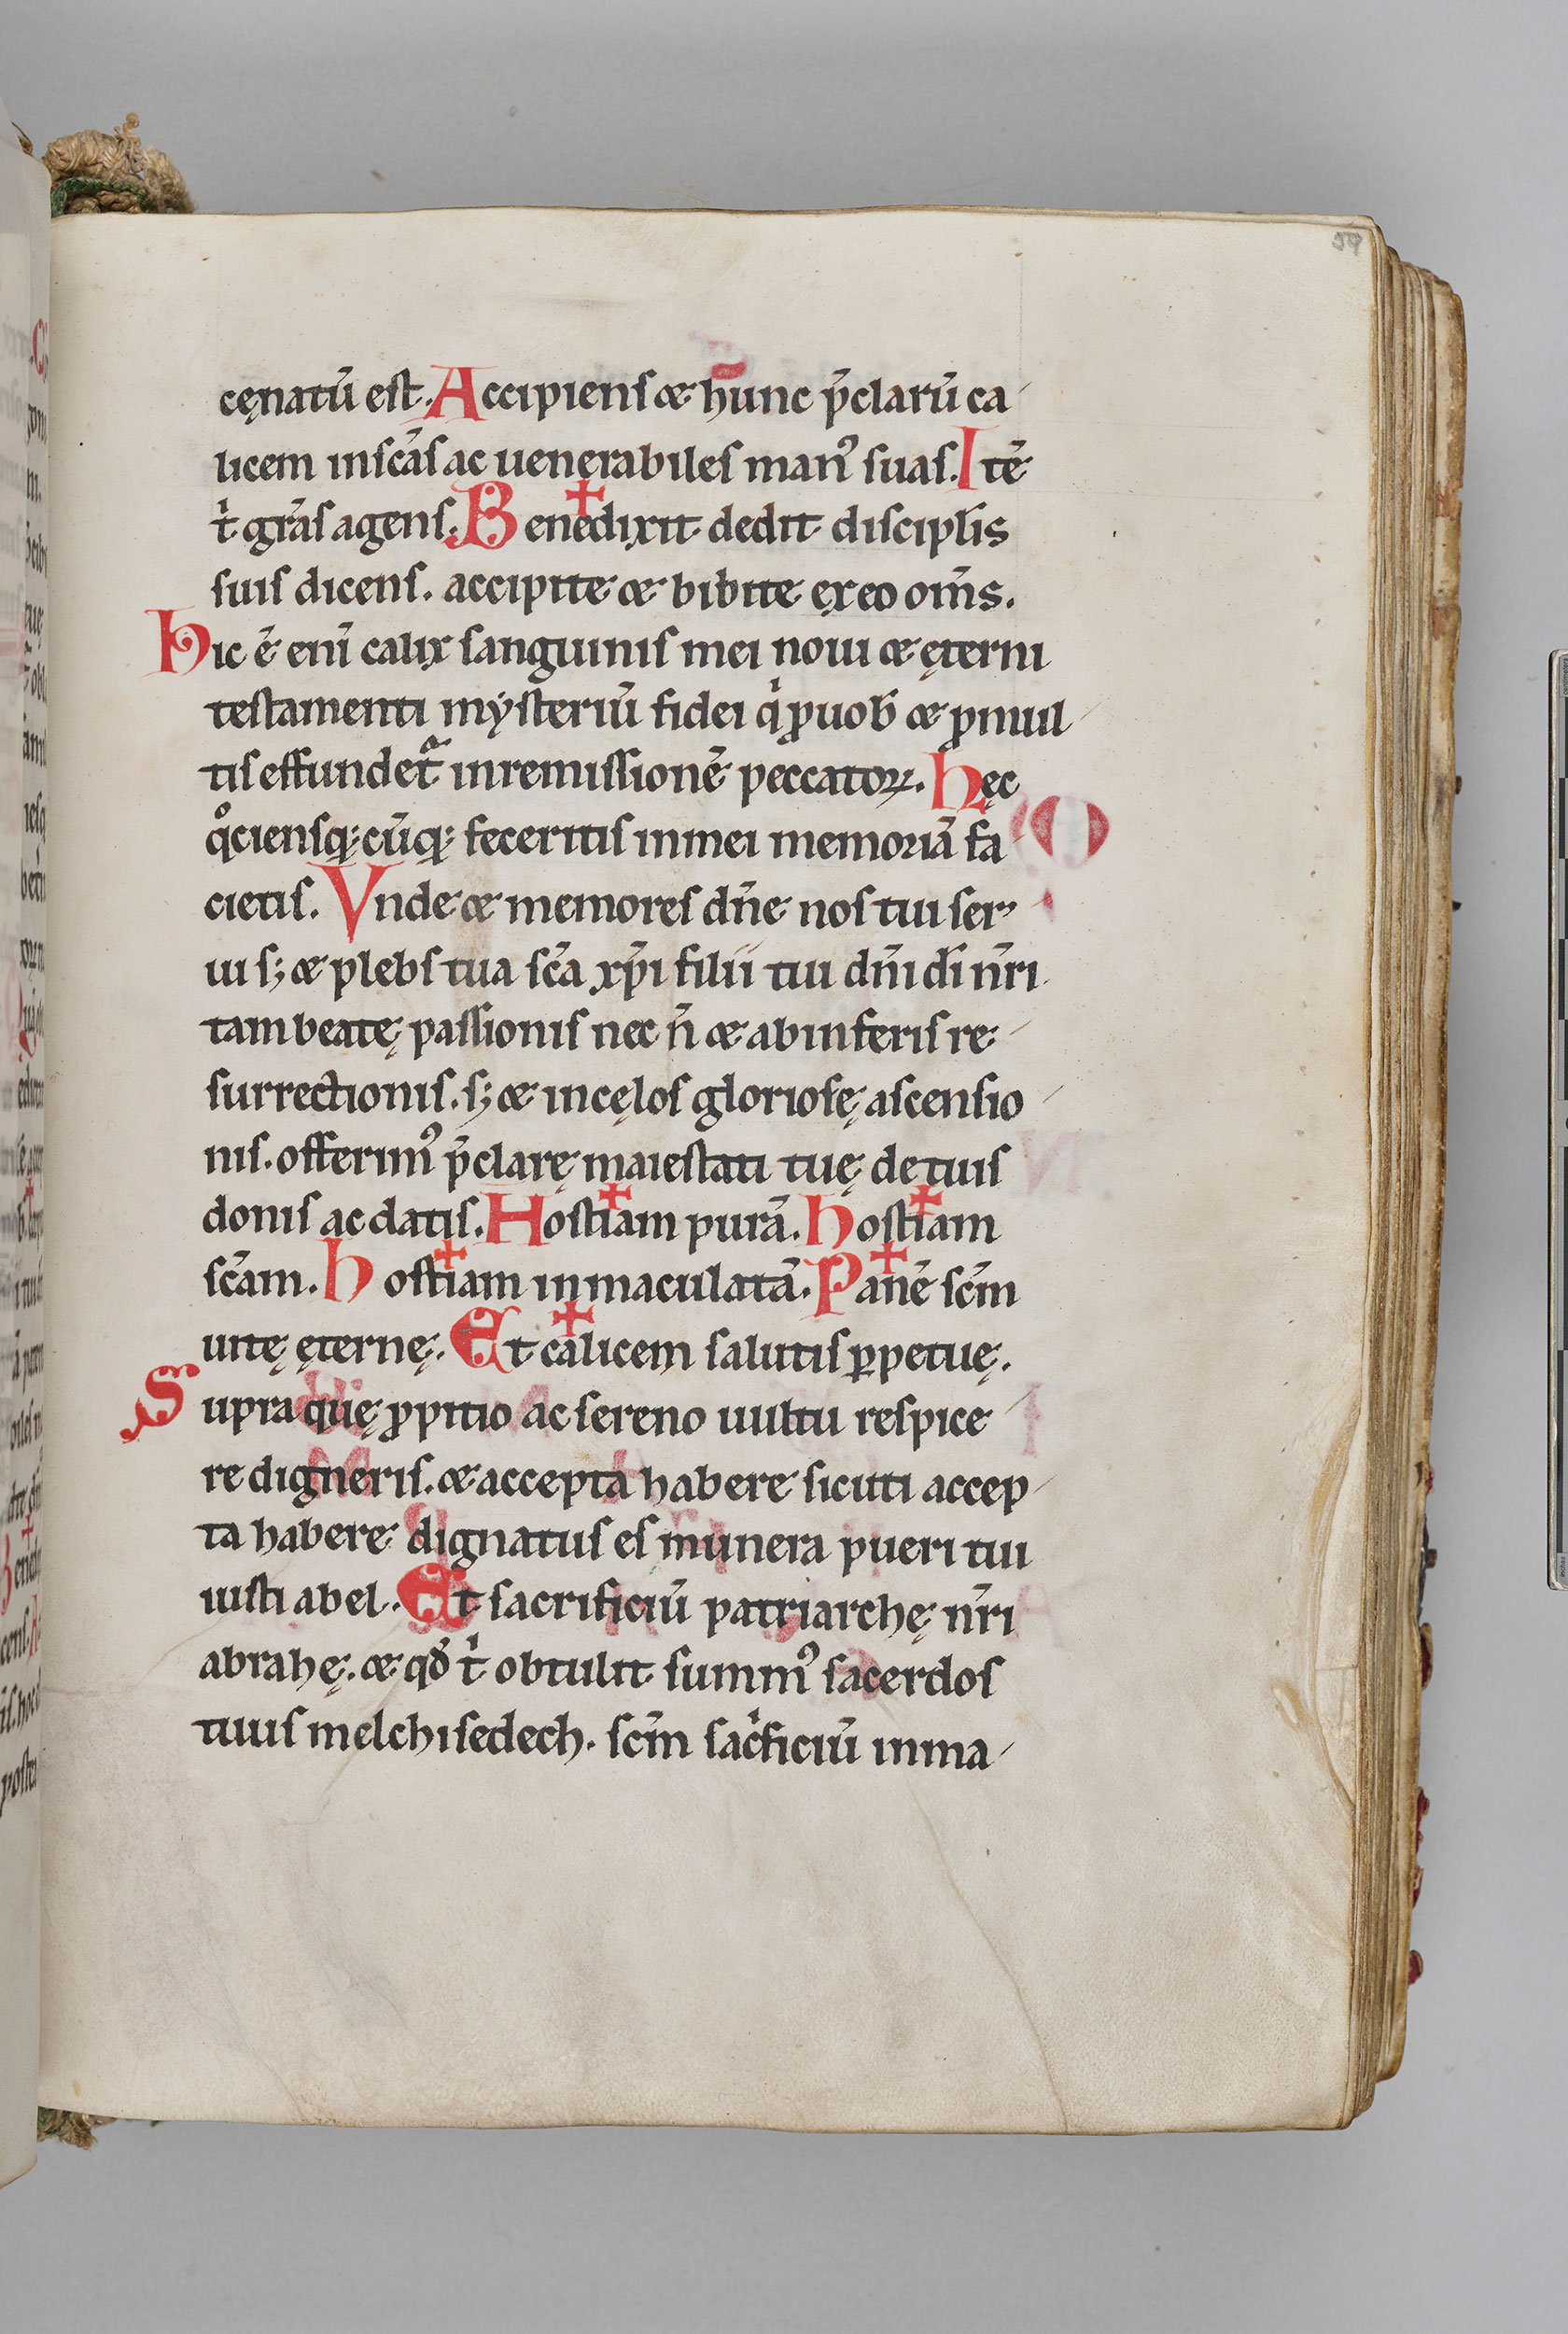 59
cęnatū est. Accipiens & hunc p̄clarū ca
licem in sc̄as ac uenerabiles man᷒ suas. Itē
tͥ gr̄as agens. Bene✝dixit dedit discipl̄is
suis dicens. accipite & bibite ex eo om̄s.
Hic ē eni̅ calix sanguinis mei noui & ęterni
testamenti mẏsteriū fidei qͥ ꝓ uob̄ & ꝓ mul
tis effundet᷑ in remissionē peccatoꝝ. Hęc
qͦciensq;cūq; feceritis in mei memoriā fa
cietis. Vnde & memores dn̄e nos tui ser
ui s; & plebs tua sc̄a xp̄i filii tui dn̄i dī nr̄i
tam beatę passionis nec n̄ & ab inferis re
surrectionis. s; & in cęlos gloriosę ascensio
nis. offerim᷒ p̄clarę maiestati tuę de tuis
donis ac datis. Hosti✝am purā. hosti✝am
sc̄am. hosti✝am inmaculatā. Pa✝nē sc̄m
uitę ęternę. Et ca✝licem salutis ꝑpetuę.
Supra quę ꝓpitio ac sereno uultu respice
re digneris. & accepta habere sicuti accep
ta habere dignatus es munera pueri tui
iusti abel. Et sacrificiū patriarchę nr̄i
abrahę. & qđ tͥ obtulit summ᷒ sacerdos
tuus melchisedech. sc̄m sacͥficiū inma